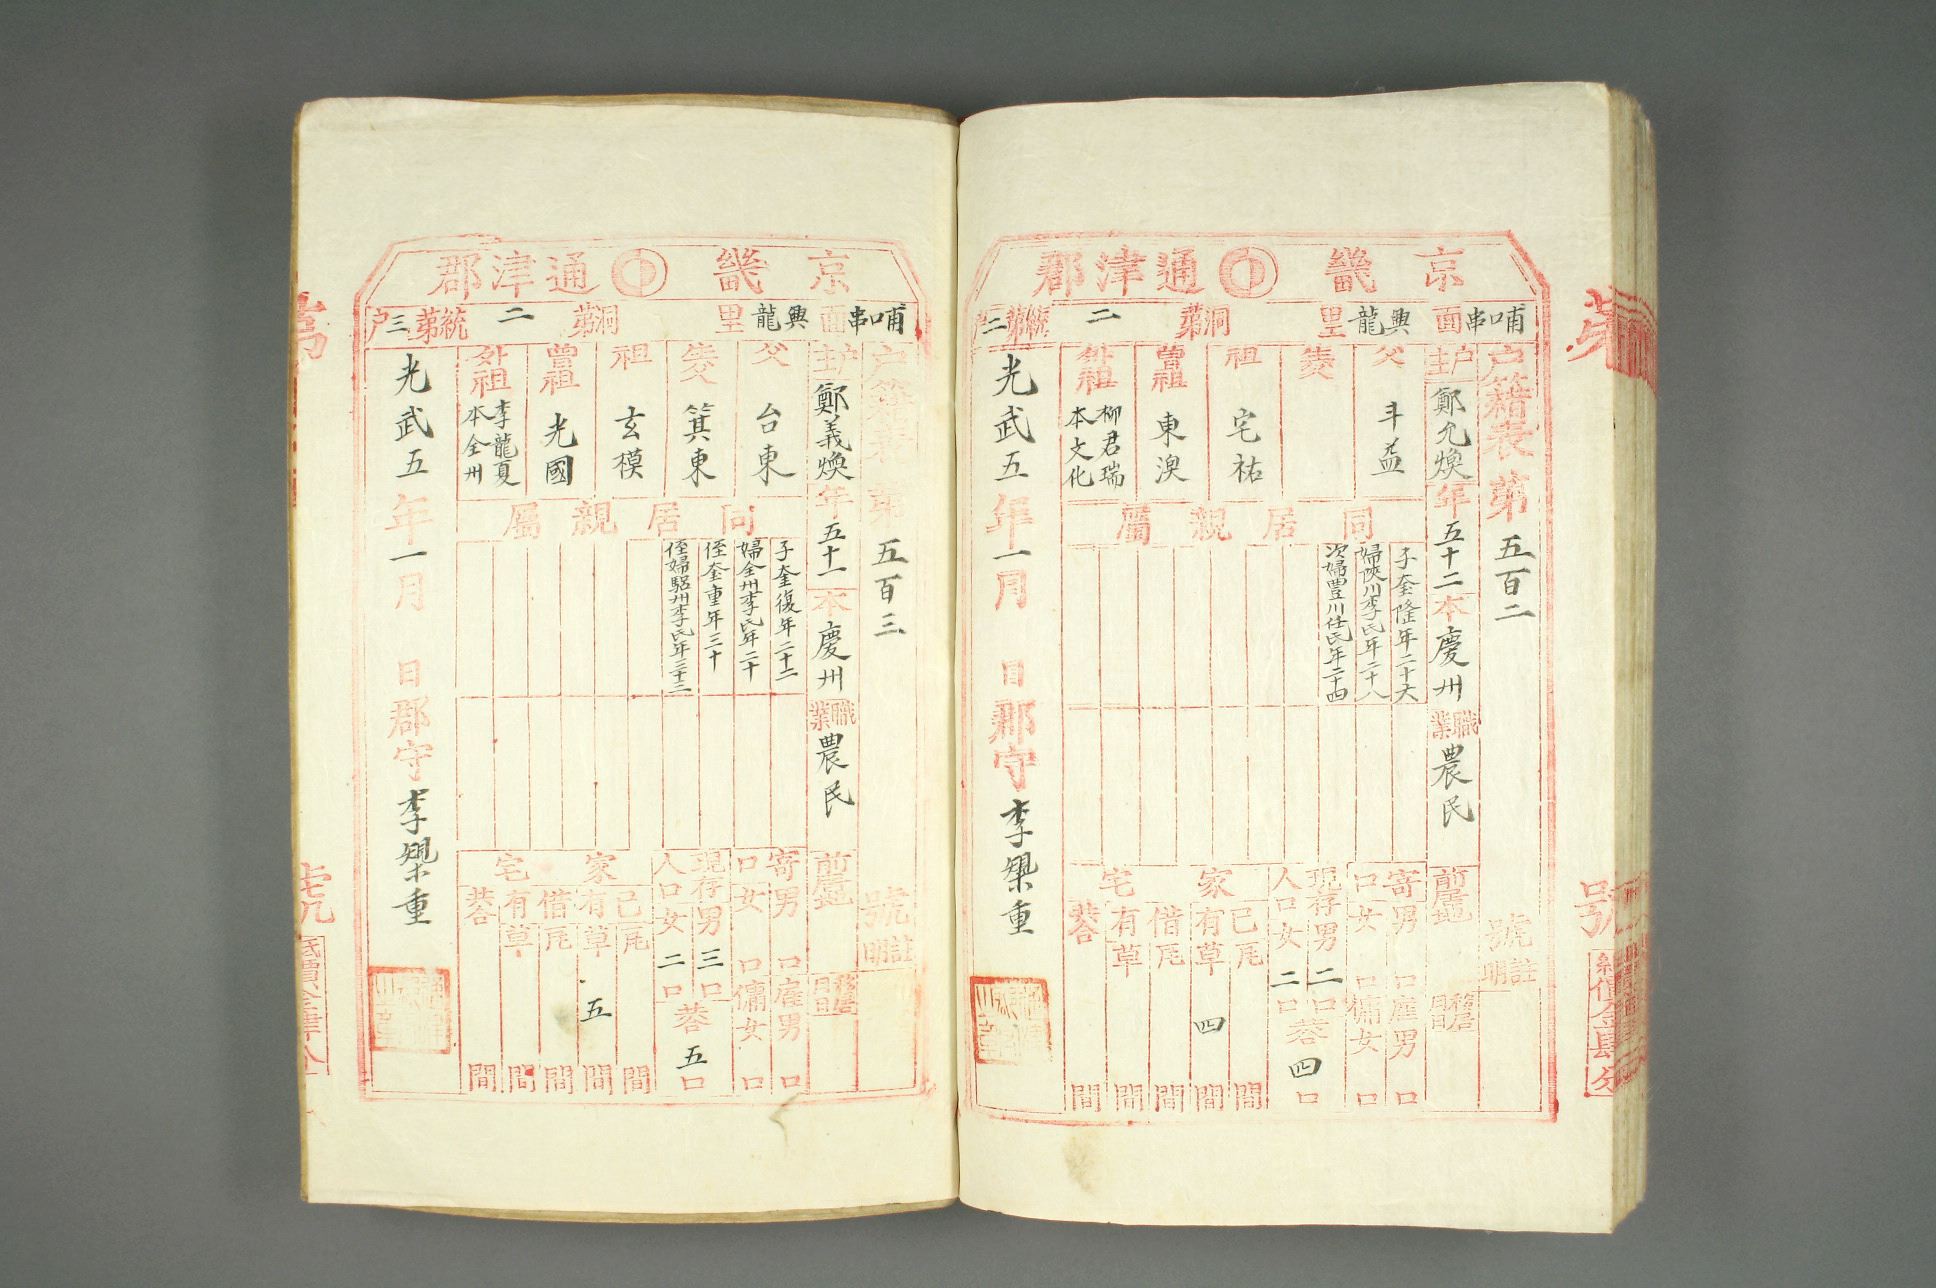 京畿 通津郡
哺口串面 興龍里 洞第二 統第二戶
戶籍表 第五百二 號
註明
戶主 鄭允煥 年五十二 本慶州 職業 農民
前居地
移居月日
父 斗益
生父
祖 宅祐
曾祖 東澳
外祖 柳君瑞 本文化
同居親屬
子奎隆年二十六
婦陜川李氏年二十八
次婦豊川任氏年二十四
寄口 男 口 女 口
雇男 口
傭女 口
現存人口 男二口 女二口
共合四口
家宅
已有 瓦 間
草 四 間
借有 瓦 間
草 間
共合 間
光武五年一月 日 郡守 李 重
第 號
京畿 通津郡
哺口串面 興龍里 洞第二 統第三戶
戶籍表 第五百三 號
註明
戶主 鄭義煥 年五十一 本慶州 職業 農民
前居地
移居月日
父 台東
生父 箕東
祖 玄模
曾祖 光國
外祖 李龍夏 本全州
同居親屬
子奎復年二十二
婦全州李氏年二十
侄奎重年三十
侄婦驪州李氏年三十三
寄口 男 口 女 口
雇男 口
傭女 口
現存人口 男三口 女二口
共合五口
家宅
已有 瓦 間
草 五 間
借有 瓦 間
草 間
共合 間
光武五年一月 日 郡守 李 重